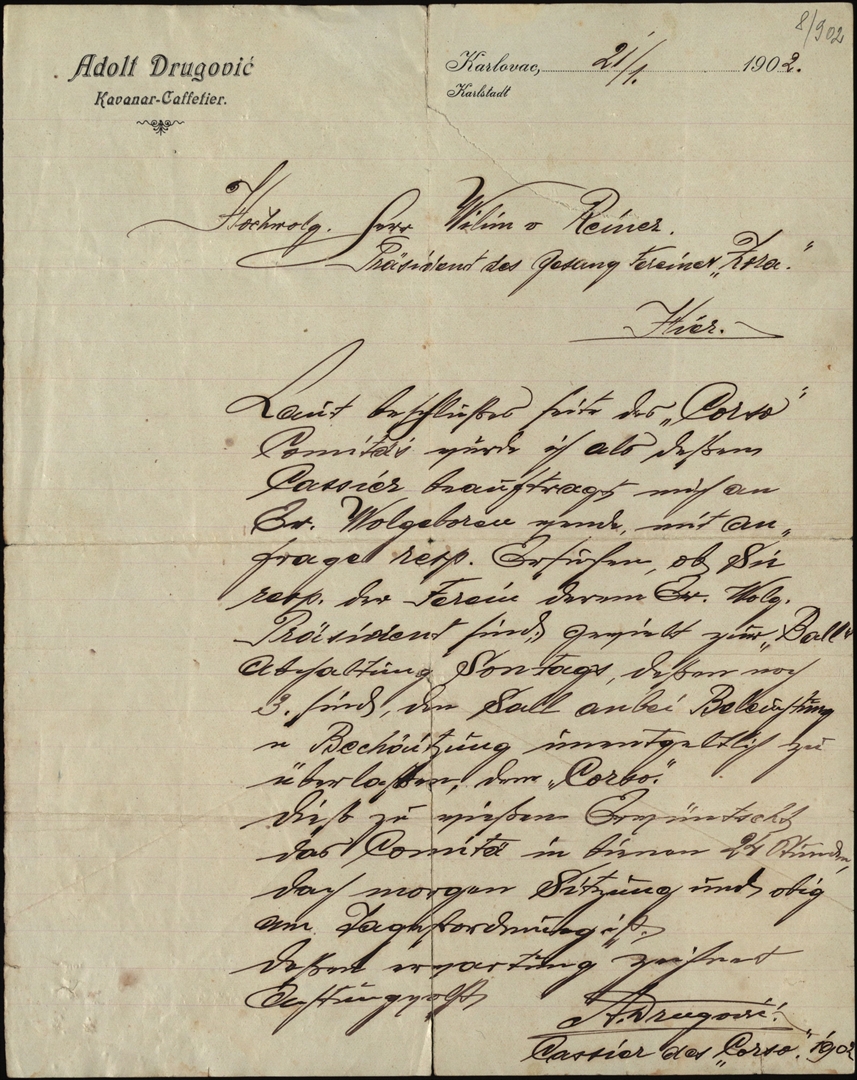 8/902
Adolf Drugović
Kavanar-Caffetier.
Karlovac, 21/1. 1902.
Karlstadt
Hochwolg. Herr Vilim v Reiner.
Präsident des Gesang Vereines „Zora."
Hier.
Laut beschlußes seits des „Corso"
Comités würde ich als deßem
Cassier beauftragt mich an
Ew. Wolgeboren wende, mit An„
frage resp. Ersuchen, ob Sie
resp. der Verein derem Ew. Wolg.
Präsident sind, gewielt zur „Ball"
Abhaltung Sontags, deßen noch
3. sind, den Sall anbei Beleuchtung
u Bechäitzung unentgeltlich zu
überlaßen, dem „Corso".
dieß zu wießen Erwüntscht
das Comité in binen 24 Stunden,
da morgen Sitzung und obig
am Tagesordnung ist,
deßen erwartung zeichnet
Achtungsvollst
A. Drugović.
Cassier des „Corso". 1902